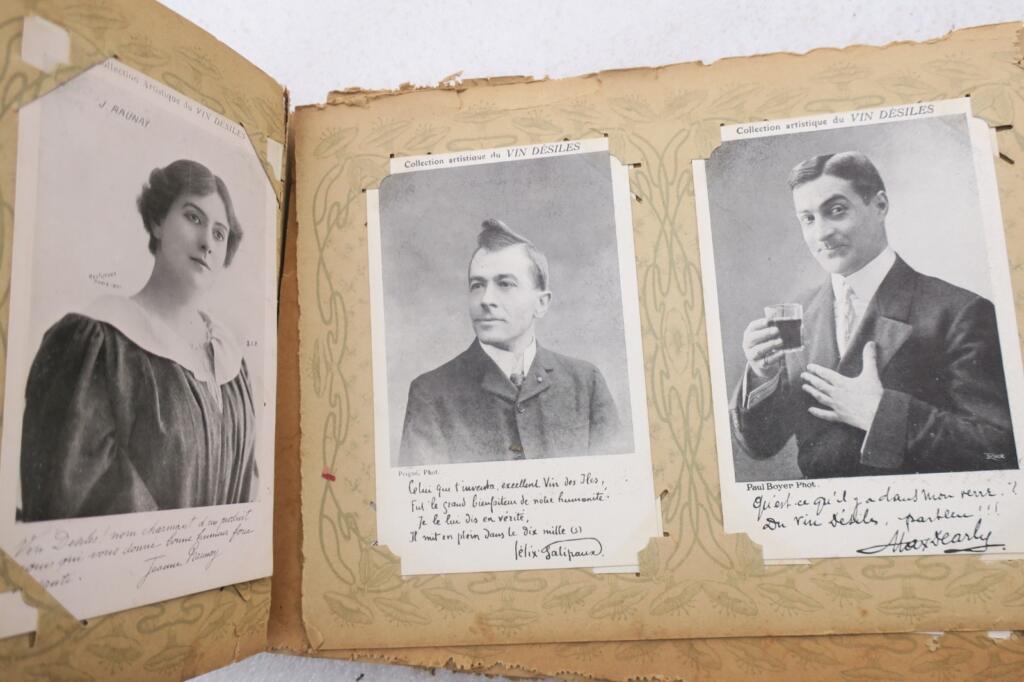 Collection Artistique du VIN DÉSILES
J. RAUNAY
Vin Désiles! nom charmant d'un produit
qui vous donne bonne humeur
Jeanne Raunay
Collection artistique du VIN DÉSILES
Prigué, Phot.
Celui qui t'inventa, excellent Vin des Iles,
Fut le grand bienfaiteur de notre humanité.
Je le lui dis en vérité,
Il mit en plein dans le dix mille (s)
Félix Galipaux.
Collection artistique du VIN DÉSILES
Paul Boyer Phot.
Qu'est-ce qu'il y a dans mon verre..?
Du Vin Désiles, parbleu!!!
Max Dearly.